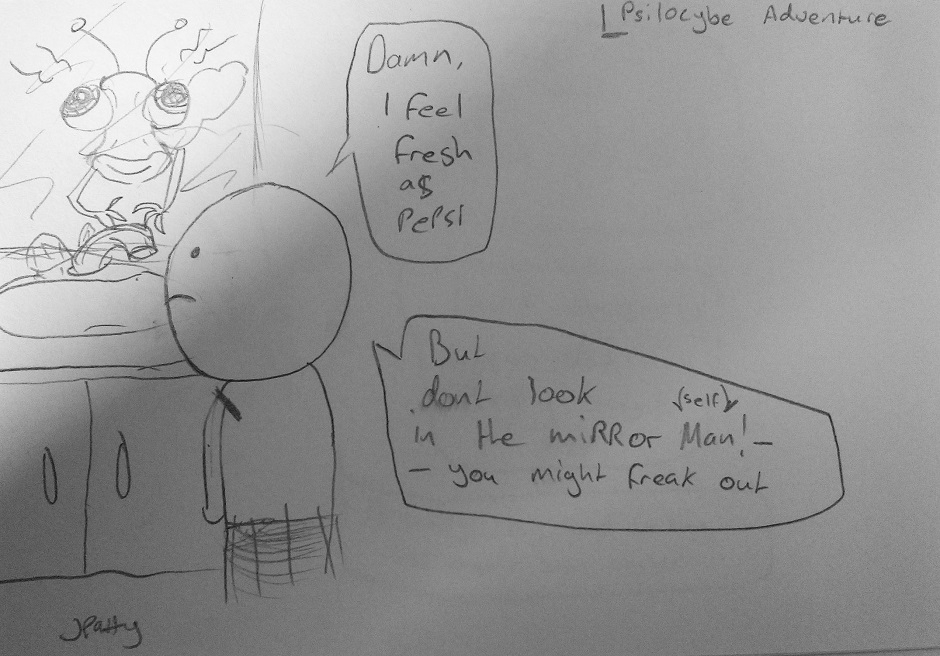 Psilocybe Adventure
Damn,
I feel
fresh
a$
PePsi
But
dont look
(self)
in the miRRor Man! –
– you might freak out
JPatty